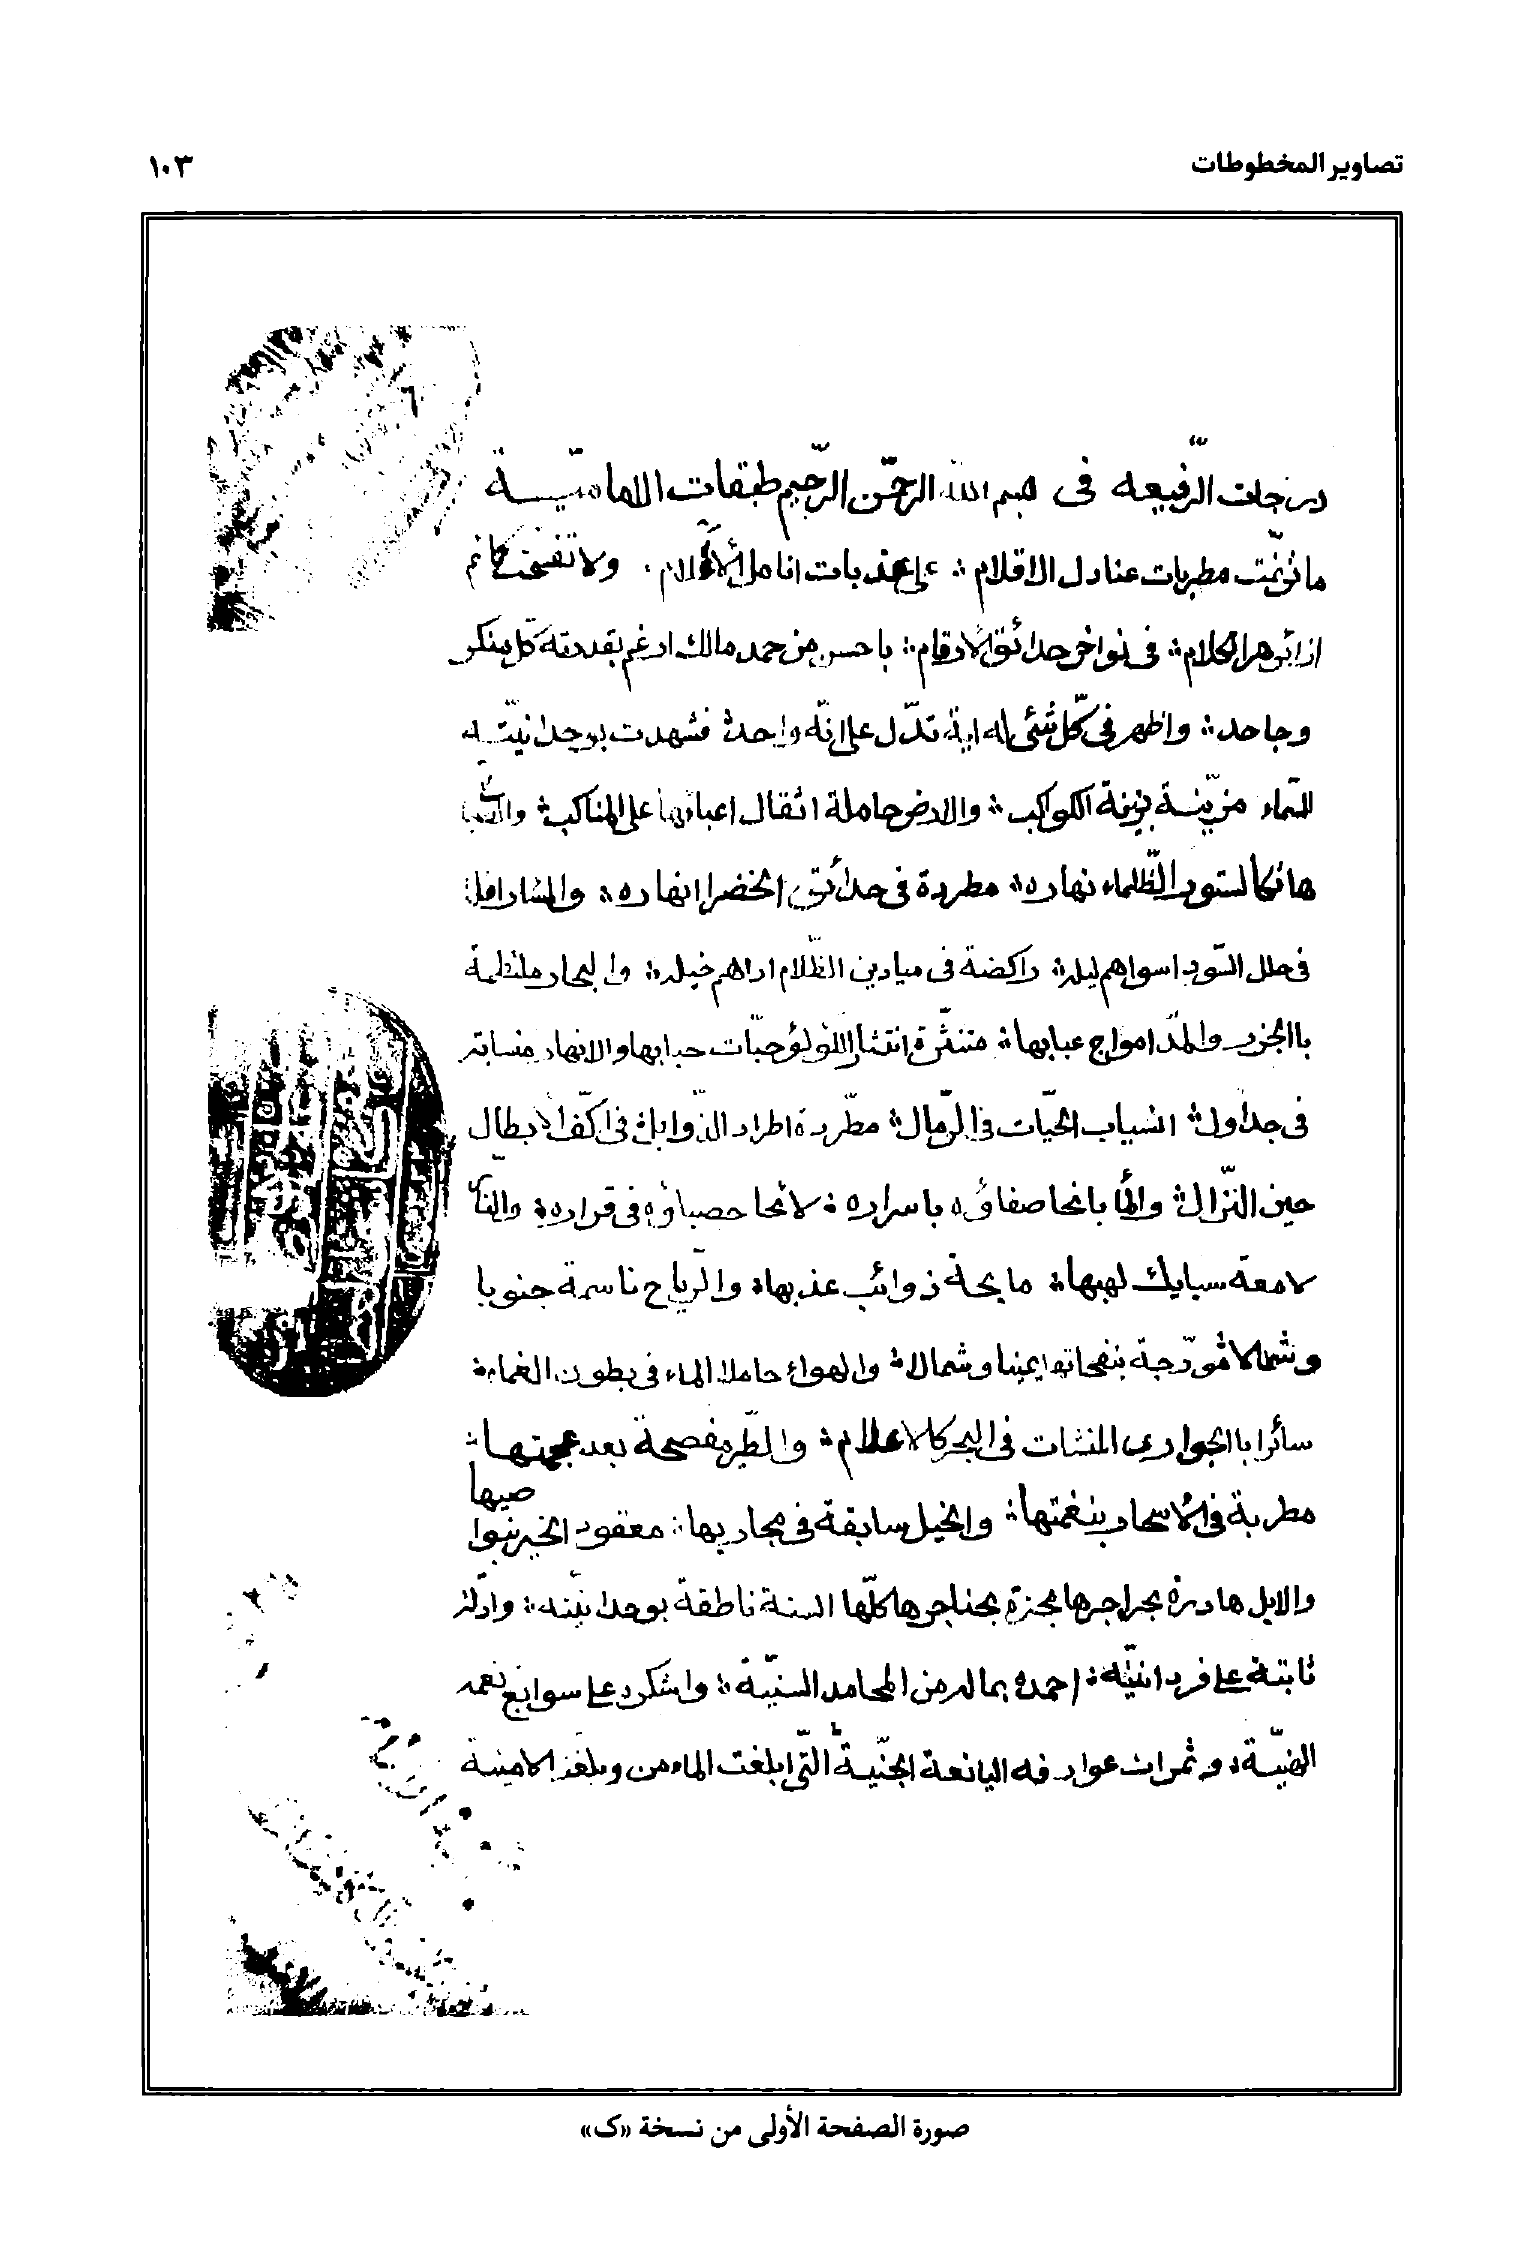 تصاوير المخطوطات
١٠٣
درجات الرّفيعه فى بسم الله الرحمن الرّحيم طبقات الاماميّة
ما ترنّمت مطربات عنادل الاقلام على عذبات انامل الأعلام ولا تفتّحت كمائم
ازاهر الكلام فى نواضر حدائق الارقام باحسن من حمد مالك ارغم بقدرته كلّ منكر
وجاحد واظهر فى كلّ شئى له اية تدّل على انّه واحد فشهدت بوحدانيّته
السّماء مزيّنة بزينة الكواكب والارض حاملة اثقال اعبائها على المناكب
هاتكا لستور الظّلماء نهاره مطردة فى حدائق الخضرا انهاره
فى حلل السّود اسواهم ليله راكضة فى ميادين الظّلام اداهم خيله والبحار ملتطمة
باالجزر والمدّ امواج عبابها منتثرة انتثار اللؤلؤ حبّات حبابها والانهار منسابة
فى جداول انسياب الحيّات فى الرّمال مطّردة اطراد الذّوابل فى اكفّ الابطال
حين النّزال والما بائحا صفاؤه باسراره لائحا حصباؤه فى قراره والنّار
لامعة سبايك لهبها مايحة ذوائب عذبها والرّياح ناسمة جنوبا
وشمالا مؤرّجة بنفحاتها يمينا وشمالا والهواء حاملا الماء فى بطون الغماء
سائرا باالجوارى المنشات فى البحر كالاعلام والطّير مفصحة بعد عجمتها
مطربة فى الاسحار بنغمتها والخيل سابقة فى مجاريها معقود الخير بنواصيها
والابل هادرة بجراجرها مجتزة بحناجرها كلّها السنة ناطقة بوحدانيّته وادلّة
ثابتة على فردانيّته احمده بما له من المحامد السنيّة واشكره على سوابغ نعمه
الهنيّة وثمرات عوارفه اليانعة الجنيّة الّتى ابلغت المامن وبلغت الامنية
صورة الصفحة الأولى من نسخة «ك»